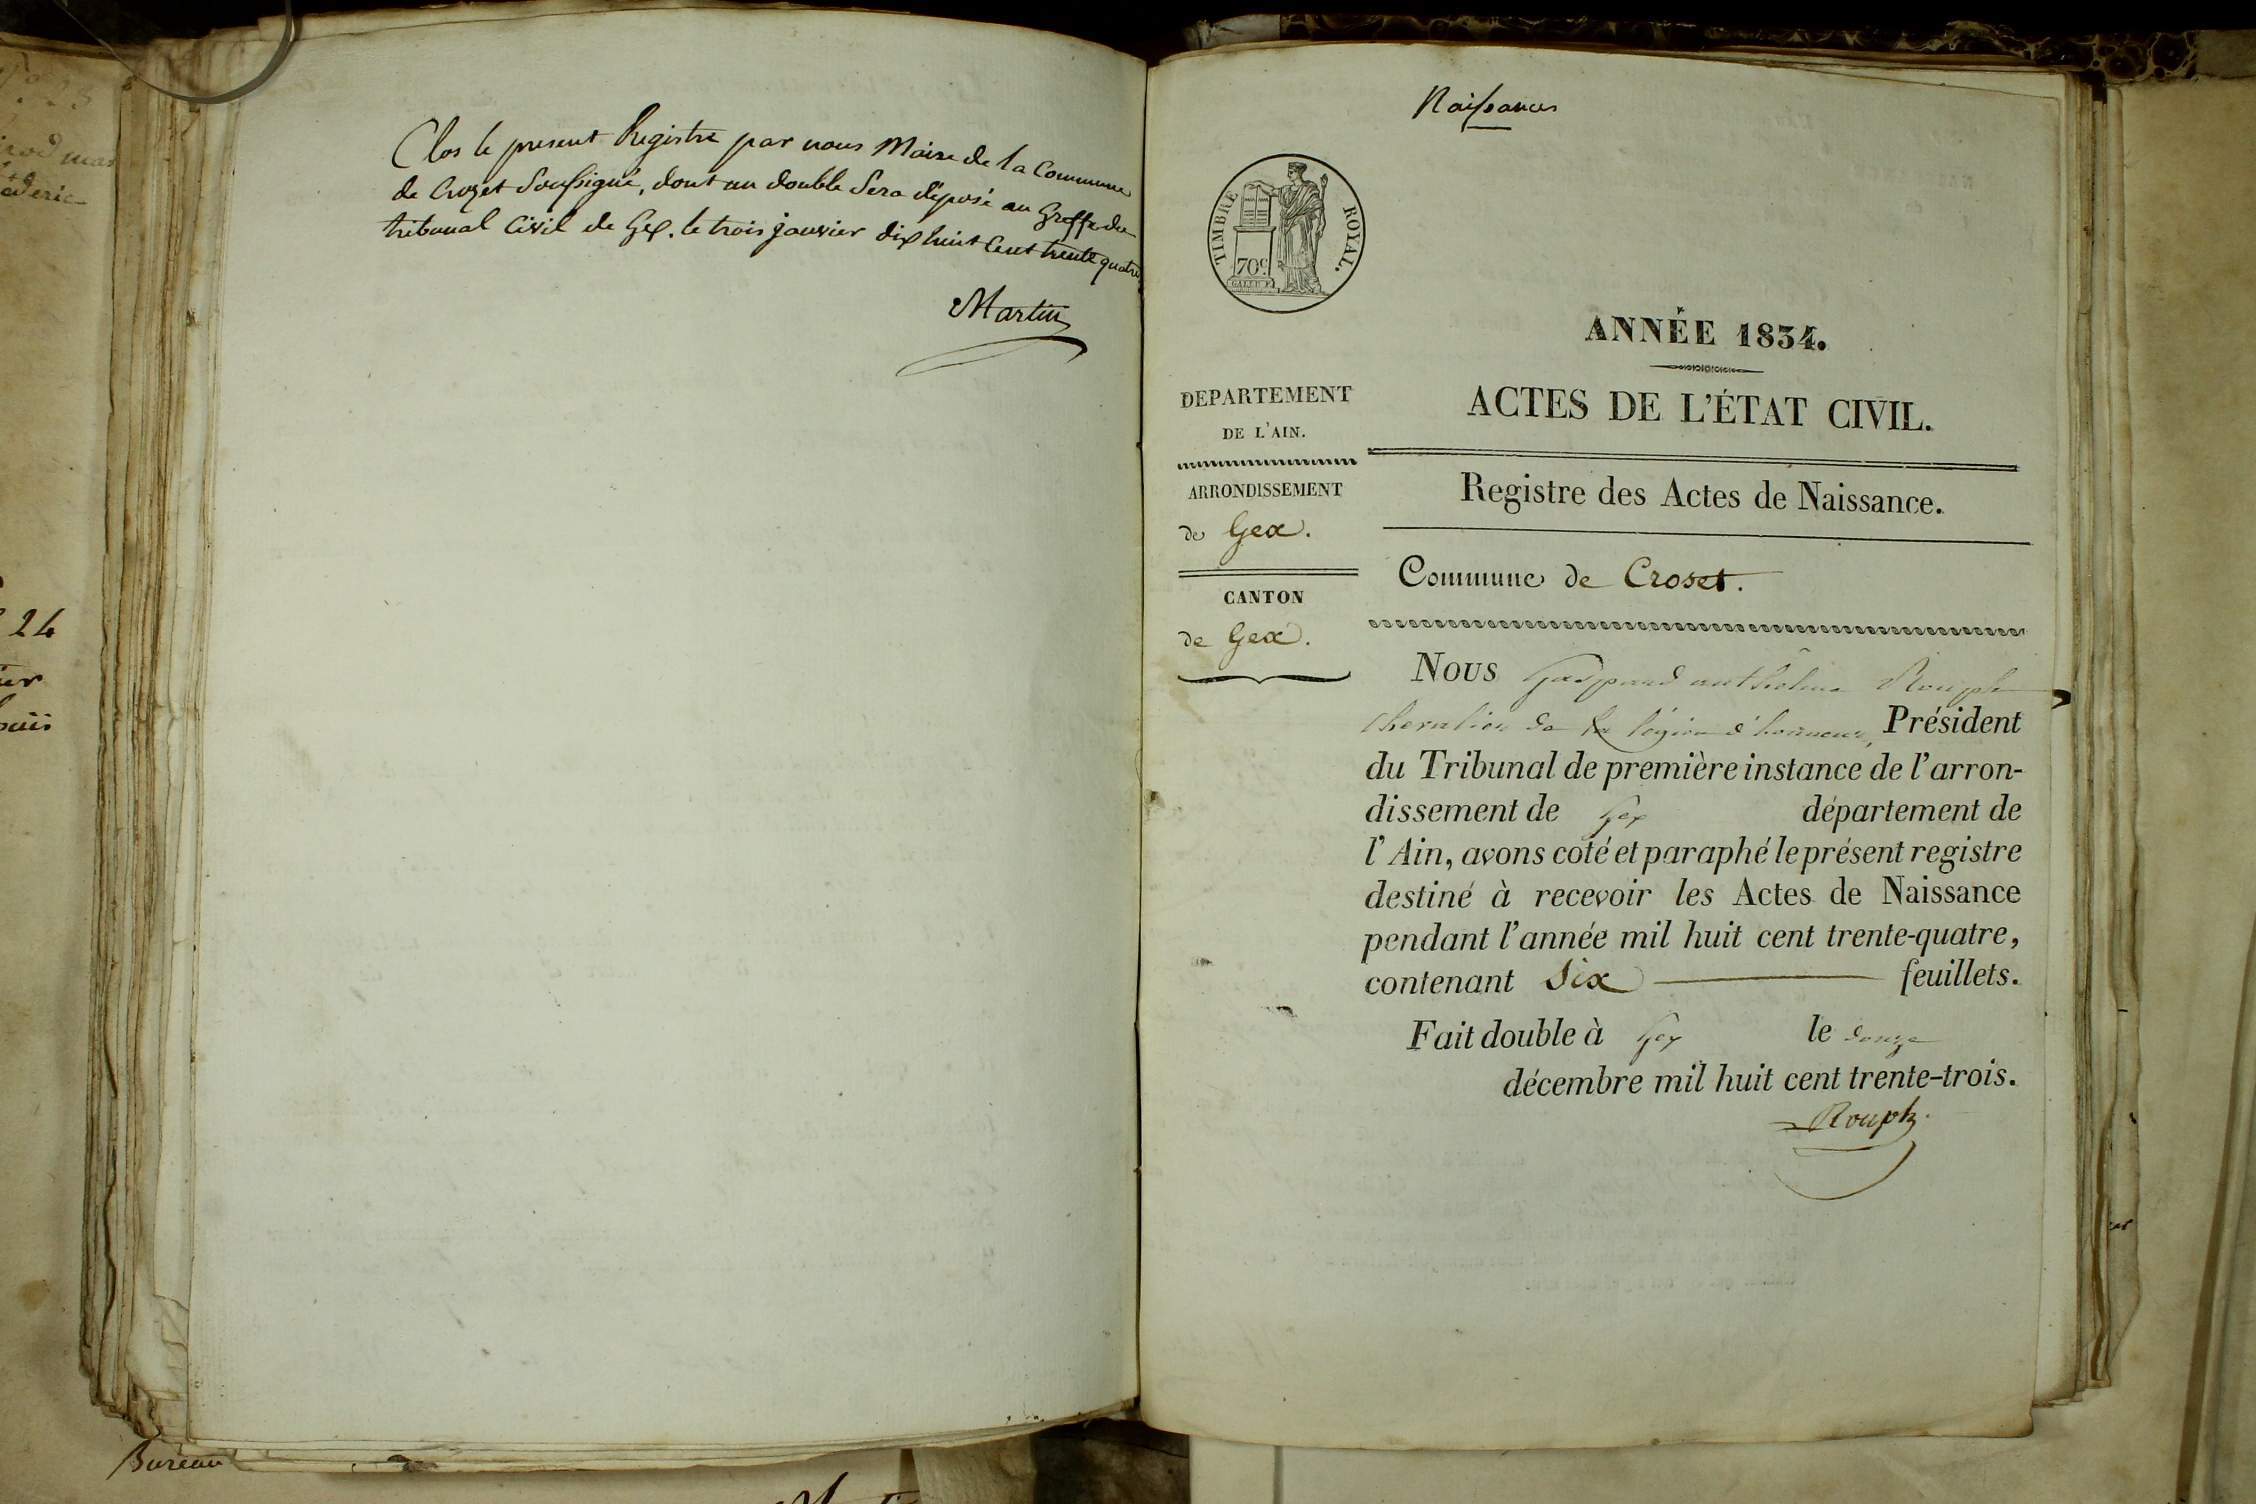 Clos le present Registre par nous Maire de la Commune
de Crozet Soussigné, dont un double Sera déposé au Greffe du
tribunal Civil de Gex. le trois janvier dix huit Cent trente quatre
Martin
24
Bureau
Naissances
TIMBRE ROYAL.
70c
ANNÉE 1834.
ACTES DE L'ÉTAT CIVIL.
Registre des Actes de Naissance.
Commune de Croset.
DEPARTEMENT
DE L'AIN.
ARRONDISSEMENT
de Gex.
CANTON
de Gex.
Nous Gaspard anthelme Rouph
chevalier de la légion d'honneur, Président
du Tribunal de première instance de l'arron-
dissement de Gex département de
l'Ain, avons coté et paraphé le présent registre
destiné à recevoir les Actes de Naissance
pendant l'année mil huit cent trente-quatre,
contenant Six feuillets.
Fait double à Gex le douze
décembre mil huit cent trente-trois.
Rouph